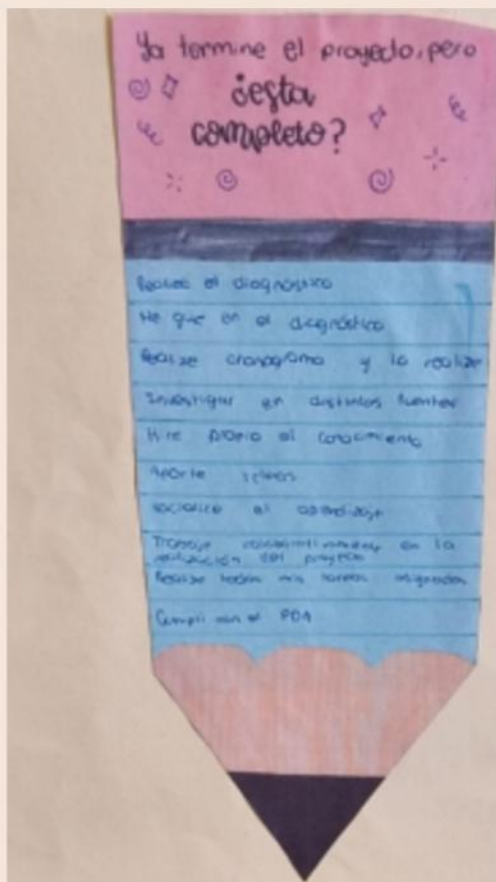 Ya termine el proyecto, pero
¿esta
completo?
Realice el diagnóstico
en el diagnóstico
Realize cronograma y lo realize
Investigue en distintas fuentes
Hice propio el conocimiento
Aporte ideas
socialice el aprendizaje
Trabaje colaborativamente en la
realización del proyecto
Realize todas mis tareas asignadas
Cumpli con el PDA